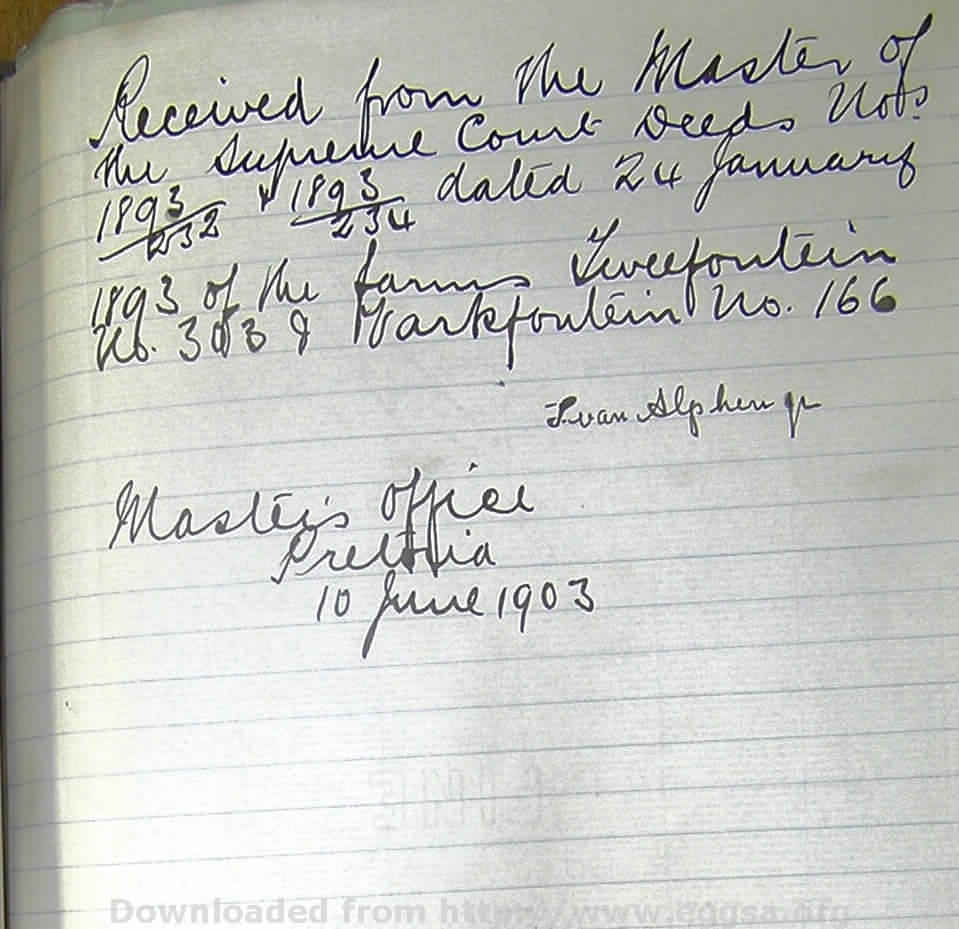 Received from the Master of
the Supreme Court Deeds Nos.
1893/232 & 1893/234 dated 24 January
1893 of the farms Tweefontein
No. 303 & Varkfontein No. 166
J. van Alphen jr
Master's Office
Pretoria
10 June 1903
Downloaded from http://www.eggsa.org